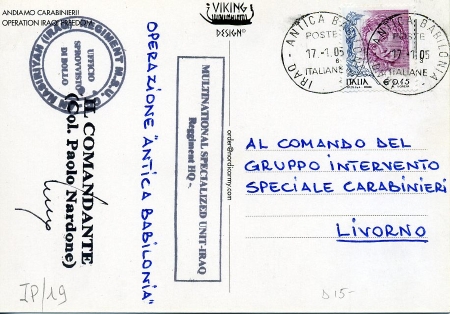 ANDIAMO CARABINIERI!
OPERATION IRAQI FREEDOM
VIKING
DESIGN®
UFFICIO
SPROVVISTO
DI BOLLO
IL COMANDANTE
(Col. Paolo Nardone)
OPERAZIONE "ANTICA BABILONIA"
MULTINATIONAL SPECIALIZED UNIT-IRAQ
Regiment HQ -
order@nordicarmy.com
IRAQ - ANTICA BABILONIA
POSTE
17.-1.05
ITALIANE
IRAQ - ANTICA BABILONIA
POSTE
17.-1.05
ITALIANE
ITALIA
€0,45
AL COMANDO DEL
GRUPPO INTERVENTO
SPECIALE CARABINIERI
LIVORNO
IP/19
D15-